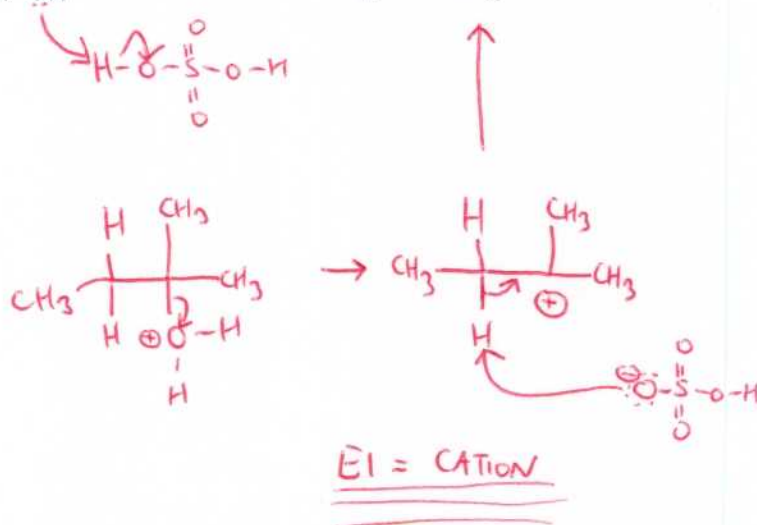 O
H-O-S-O-H
O
H CH3
CH3 CH3
H ⊕O-H
H
H CH3
CH3 CH3
⊕
H
O
⊖O-S-O-H
O
E1 = CATION